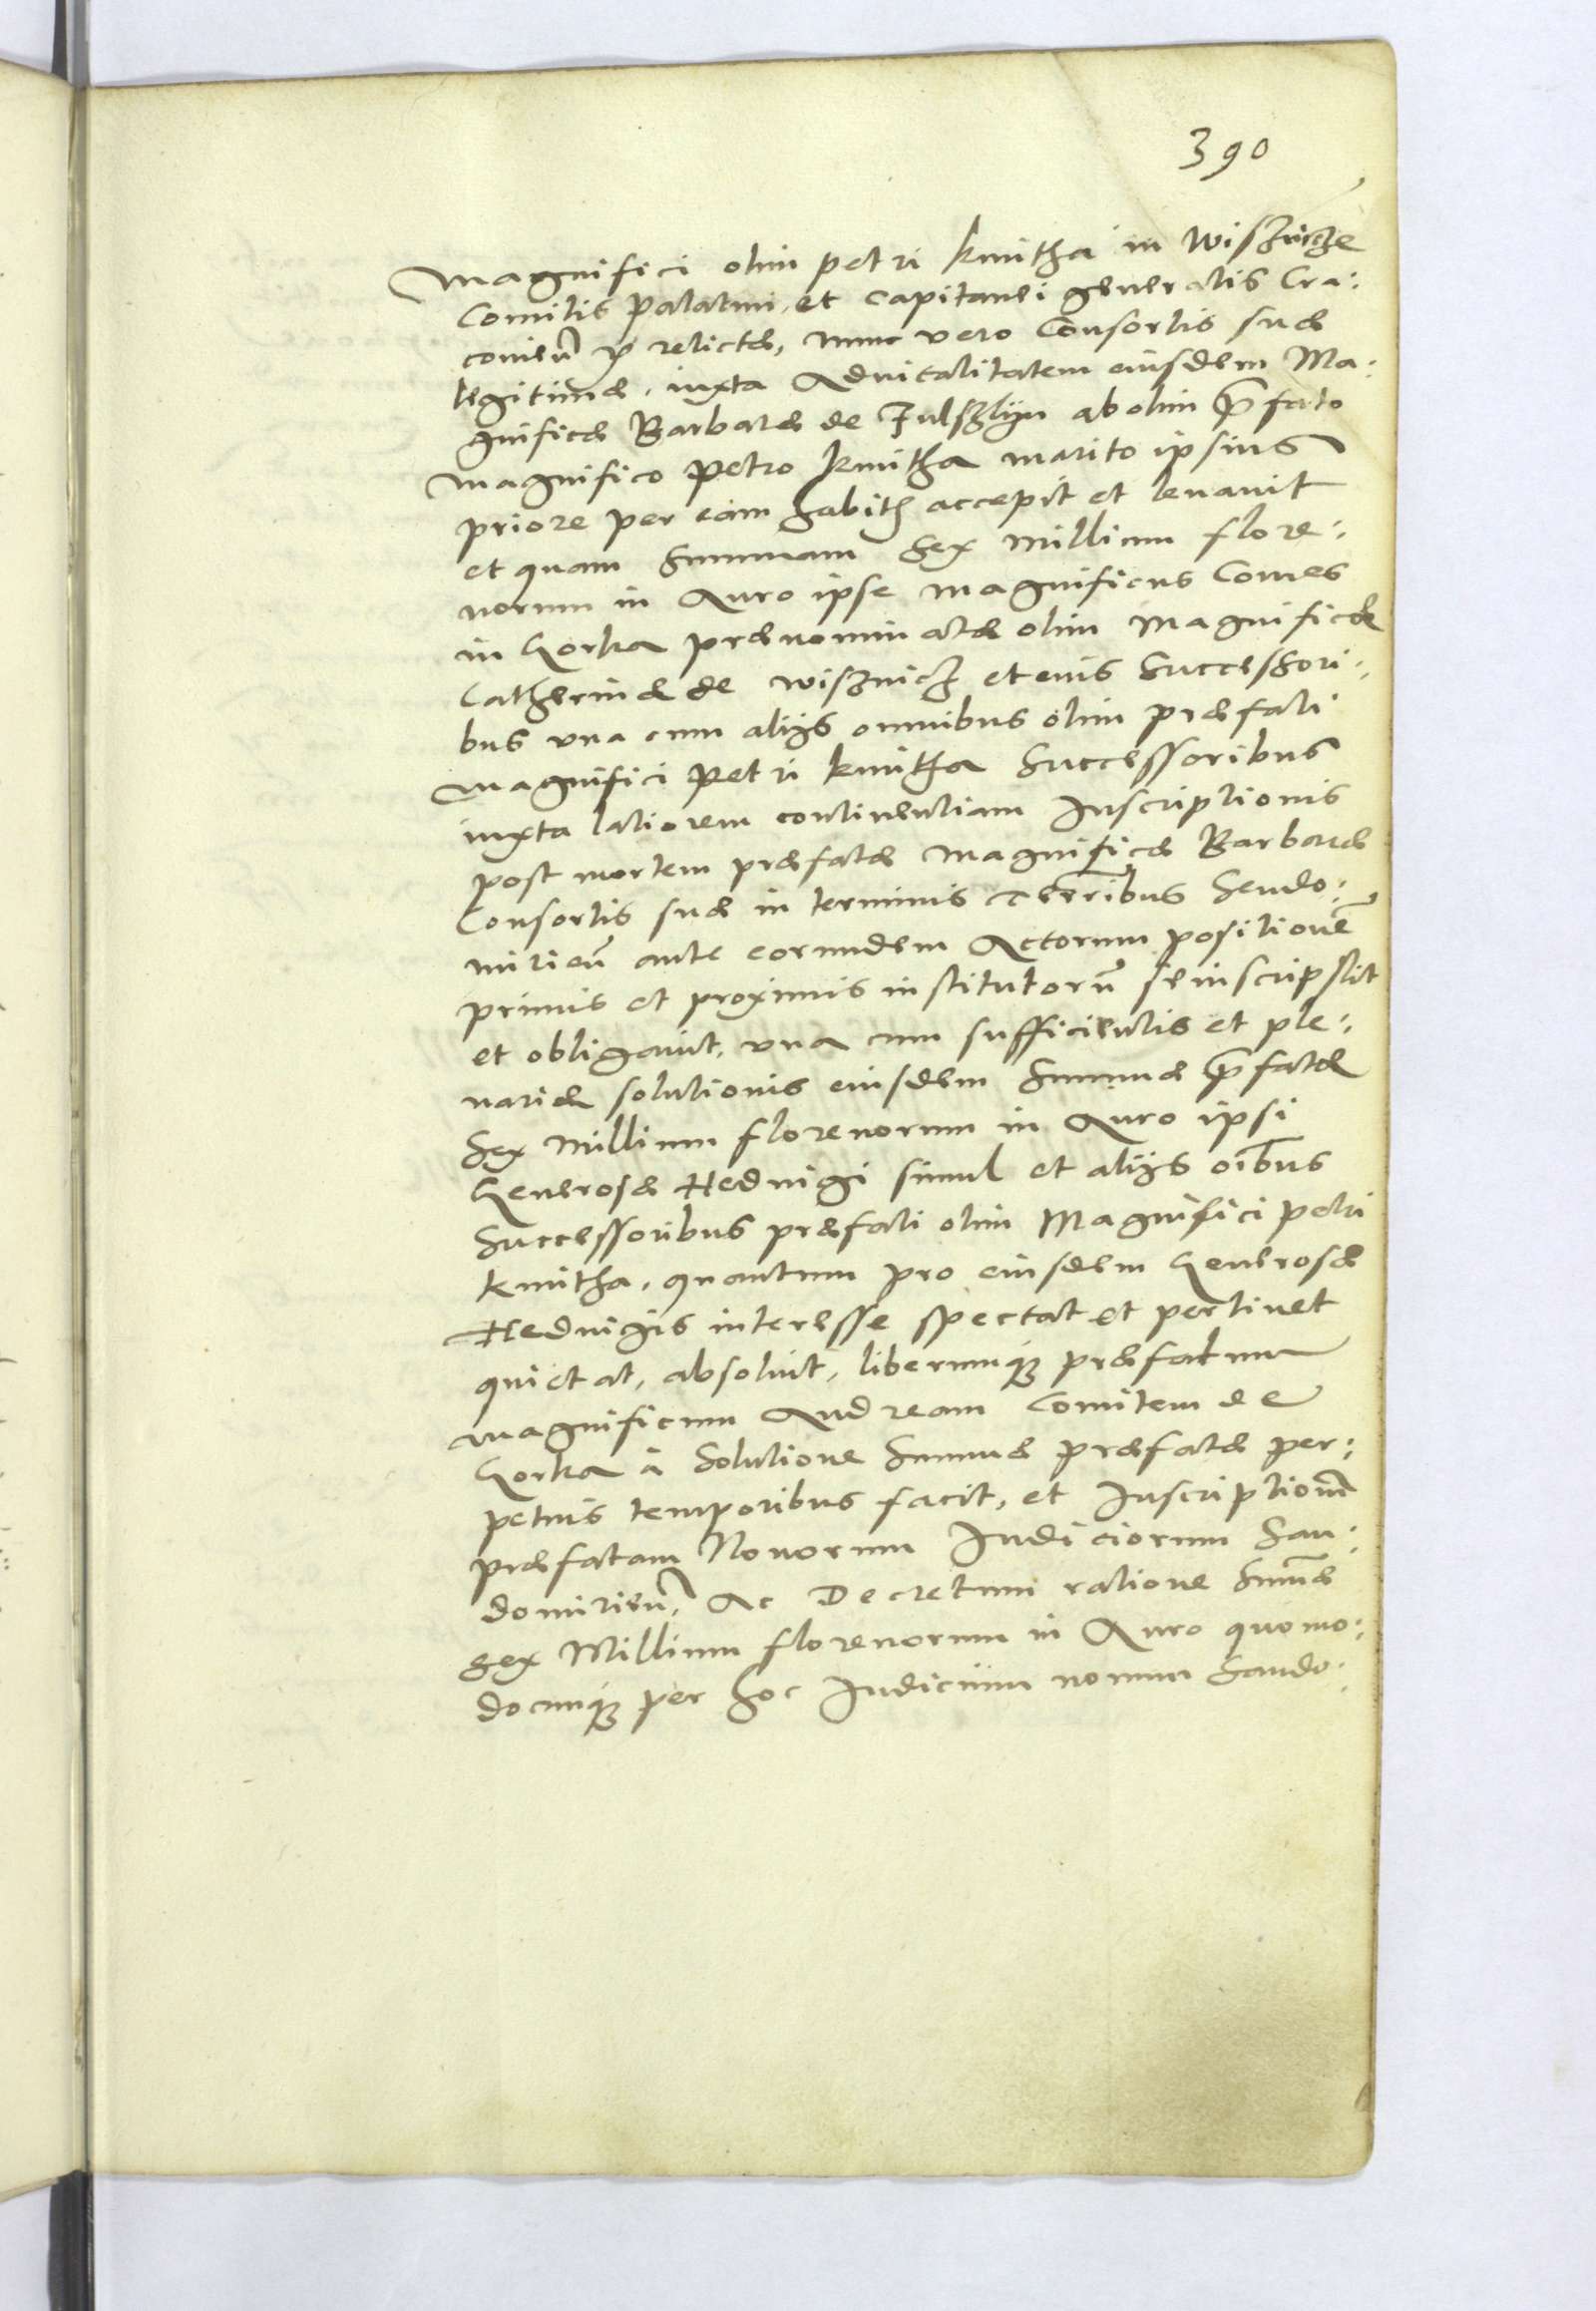 390
Magnifici olim Petri kmitha in Wisznicze
Comitis Palatini, et Capitanei generalis Cra:
conień relictæ, nunc vero Consortis suæ
legitimæ, iuxta Aduitalitatem eiusdem Ma:
gnificæ Barbaræ de Fulsztyn ab olim p̄fato
Magnifico Petro kmitha marito ipsius
priore per eam habit accepit et leuauit
et quam Summam Sex Millium flore:
norum in Auro ipse Magnificus Comes
in Gorka prænominatæ olim Magnificæ
Catherinæ de Wisznicz et eius Successori:
bus vna cum alijs omnibus olim præfati
Magnifici Petri kmitha Successoribus
iuxta latiorem continentiam Inscriptionis
post mortem præfatæ Magnificæ Barbaræ
Consortis suæ in terminis Terr̄ibus Sendo:
mirień ante eorundem Actorum positionē
primis et proximis institutorū se inscripsit
et obligauit, vna cum sufficientis et ple:
nariæ solutionis eiusdem Summæ p̄fatæ
Sex Millium florenorum in Auro ipsi
Generosæ Hedwigi simul et alijs oībus
Successoribus præfati olim Magnifici Petri
kmitha, quantum pro eiusdem Generosæ
Hedwigis interesse spectat et pertinet
quietat, absoluit, liberumq; præfatum
Magnificum Andream Comitem de
Gorka à Solutione Summæ præfatæ per:
petuis temporibus facit, et Inscriptionē
præfatam Nouorum Iudiciorum San:
domirień, Ac Decretum ratione Sum̄æ
Sex Millium florenorum in Auro quomo:
documq; per hoc Iudicium nouum Sando: